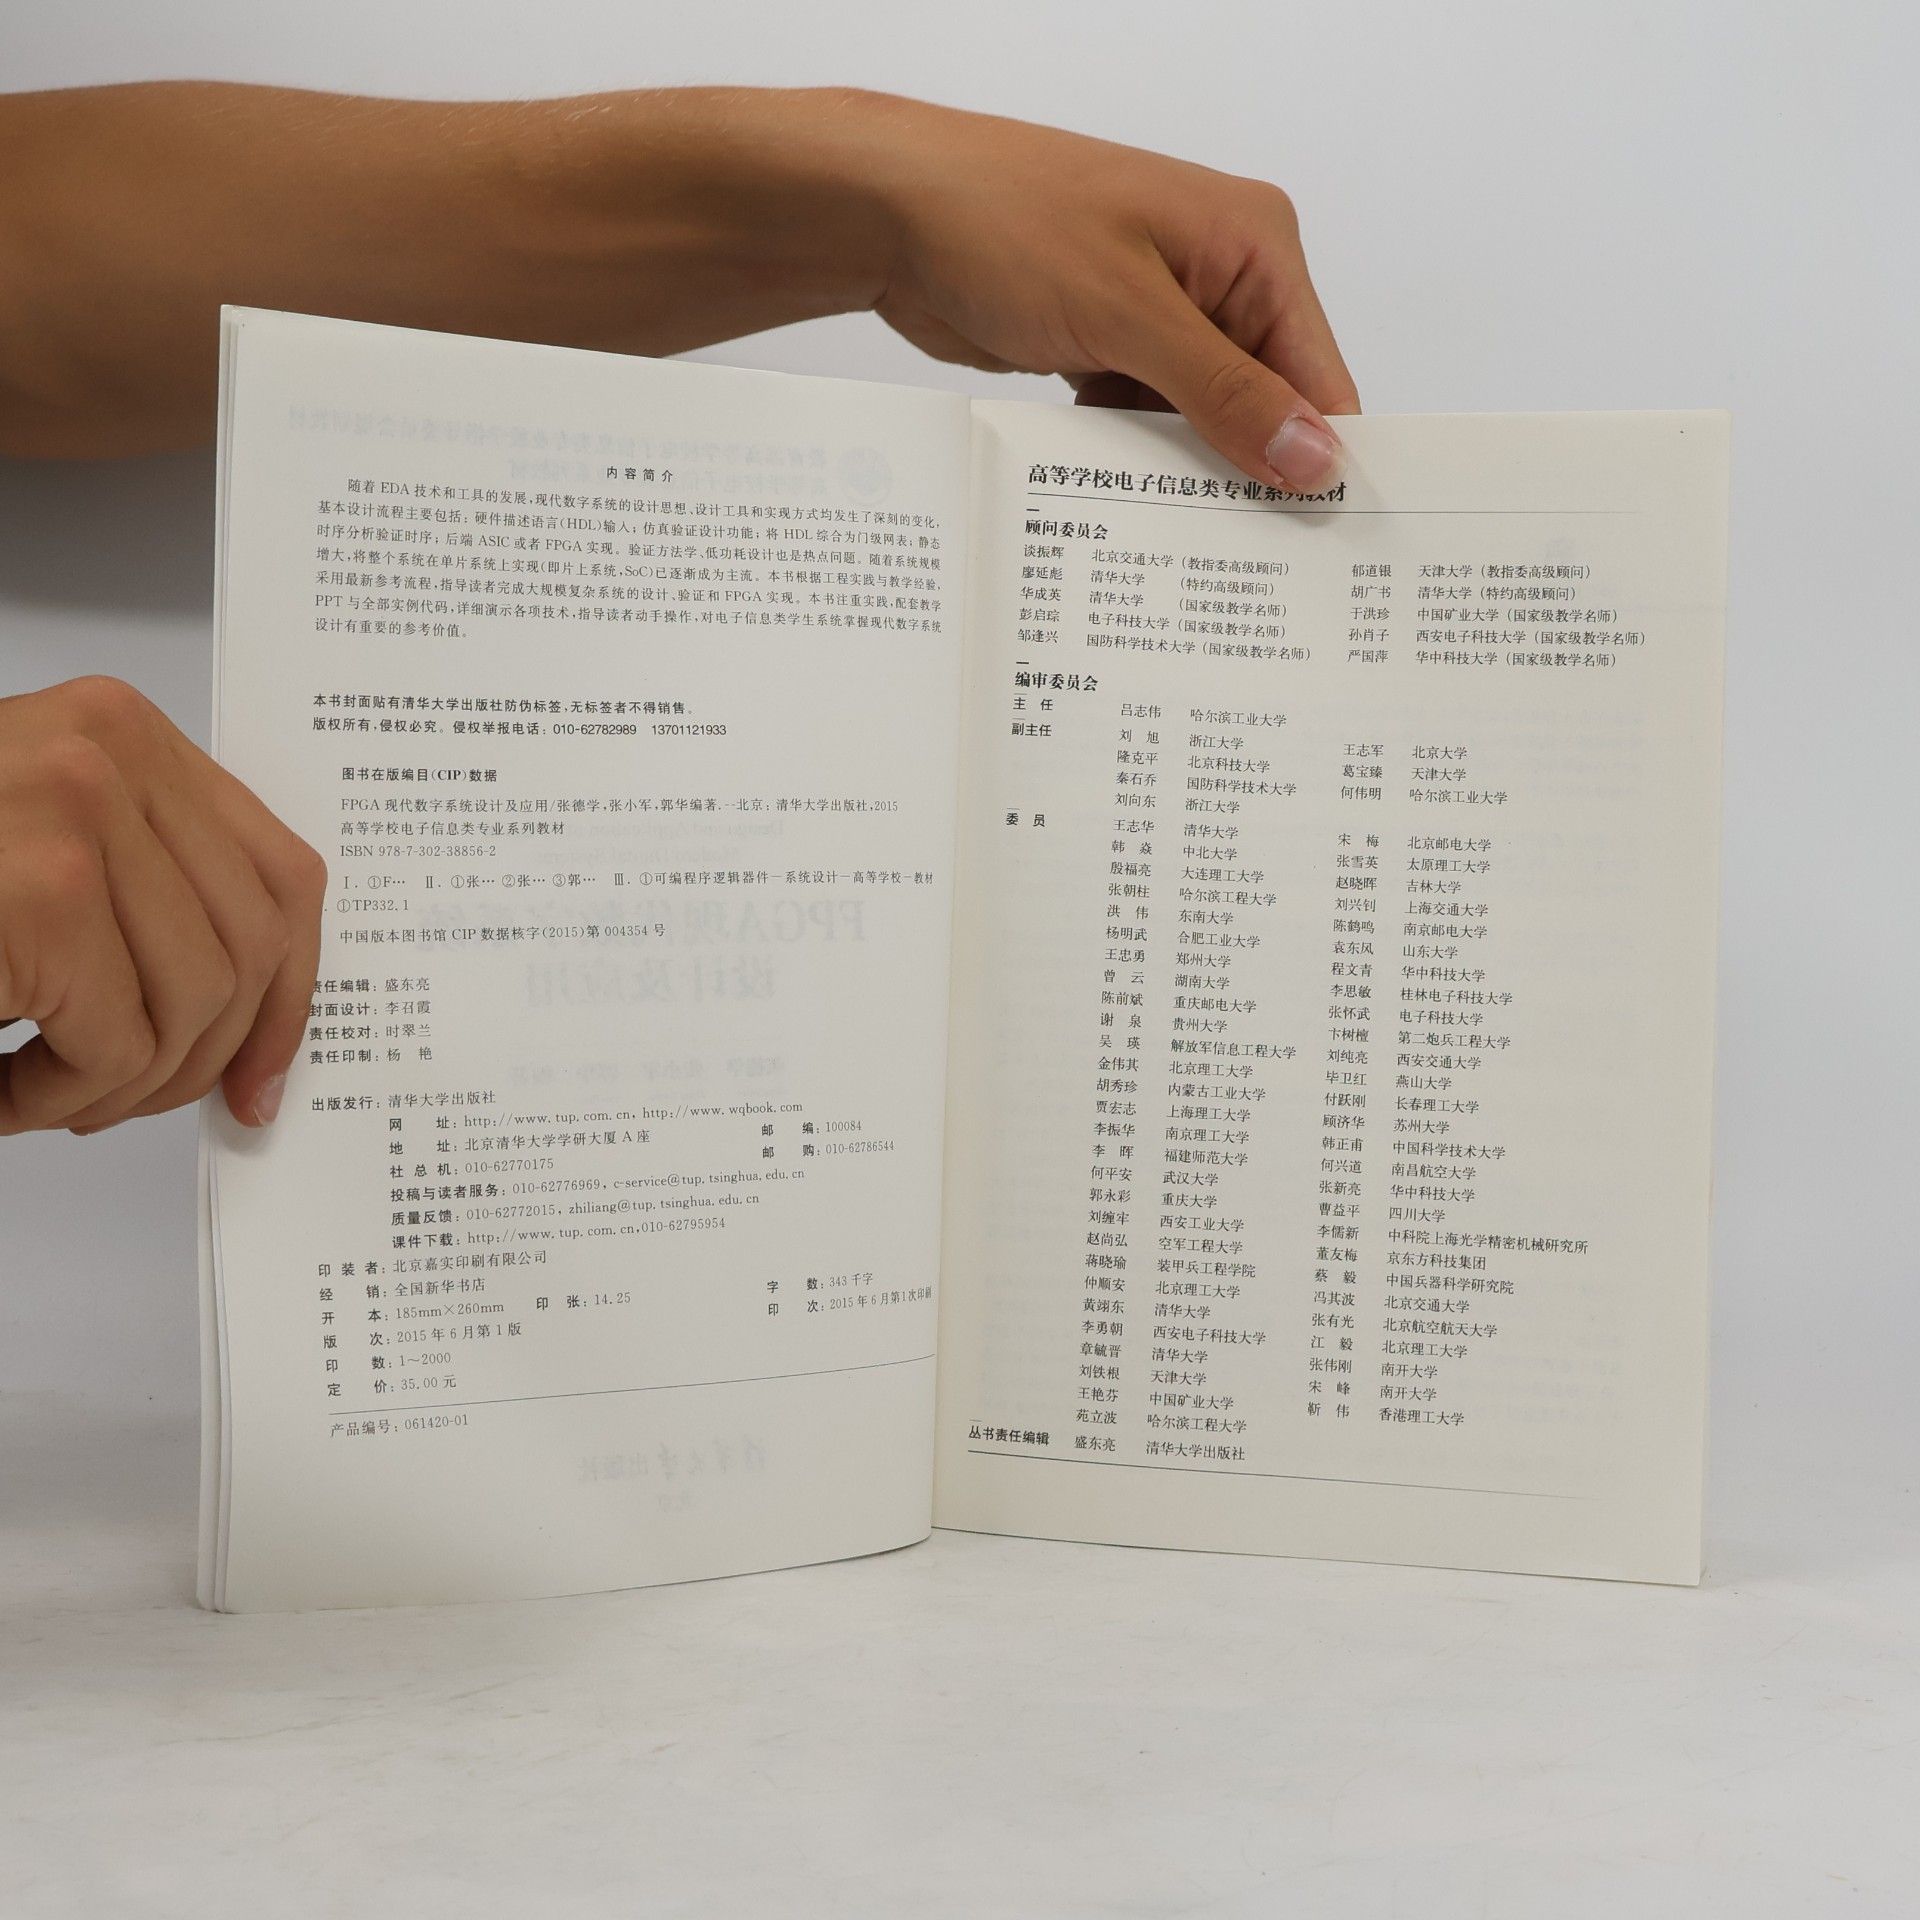 内容简介
随着 EDA 技术和工具的发展,现代数字系统的设计思想、设计工具和实现方式均发生了深刻的变化,
基本设计流程主要包括：硬件描述语言(HDL)输入；仿真验证设计功能；将 HDL 综合为门级网表；静态
时序分析验证时序；后端 ASIC 或者 FPGA 实现。验证方法学、低功耗设计也是热点问题。随着系统规模
增大,将整个系统在单片系统上实现(即片上系统,SoC)已逐渐成为主流。本书根据工程实践与教学经验,
采用最新参考流程,指导读者完成大规模复杂系统的设计、验证和 FPGA 实现。本书注重实践,配套教学
PPT 与全部实例代码,详细演示各项技术,指导读者动手操作,对电子信息类学生系统掌握现代数字系统
设计有重要的参考价值。
本书封面贴有清华大学出版社防伪标签,无标签者不得销售。
版权所有,侵权必究。侵权举报电话：010-62782989 13701121933
图书在版编目(CIP)数据
FPGA 现代数字系统设计及应用/张德学,张小军,郭华编著.--北京：清华大学出版社,2015
高等学校电子信息类专业系列教材
ISBN 978-7-302-38856-2
Ⅰ. ①F… Ⅱ. ①张… ②张… ③郭… Ⅲ. ①可编程序逻辑器件－系统设计－高等学校－教材
. ①TP332.1
中国版本图书馆 CIP 数据核字(2015)第 004354 号
责任编辑：盛东亮
封面设计：李召霞
责任校对：时翠兰
责任印制：杨 艳
出版发行：清华大学出版社
网 址：http://www.tup.com.cn, http://www.wqbook.com
地 址：北京清华大学学研大厦 A 座 邮 编：100084
社 总 机：010-62770175 邮 购：010-62786544
投稿与读者服务：010-62776969, c-service@tup.tsinghua.edu.cn
质量反馈：010-62772015, zhiliang@tup.tsinghua.edu.cn
课件下载：http://www.tup.com.cn,010-62795954
印 装 者：北京嘉实印刷有限公司
经 销：全国新华书店
开 本：185mm×260mm 印 张：14.25 字 数：343 千字
版 次：2015 年 6 月第 1 版 印 次：2015 年 6 月第 1 次印刷
印 数：1～2000
定 价：35.00 元
产品编号：061420-01
高等学校电子信息类专业系列教材
顾问委员会
谈振辉 北京交通大学（教指委高级顾问） 郁道银 天津大学（教指委高级顾问）
廖延彪 清华大学 （特约高级顾问） 胡广书 清华大学（特约高级顾问）
华成英 清华大学 （国家级教学名师） 于洪珍 中国矿业大学（国家级教学名师）
彭启琮 电子科技大学（国家级教学名师） 孙肖子 西安电子科技大学（国家级教学名师）
邹逢兴 国防科学技术大学（国家级教学名师） 严国萍 华中科技大学（国家级教学名师）
编审委员会
主 任 吕志伟 哈尔滨工业大学
副主任 刘 旭 浙江大学 王志军 北京大学
隆克平 北京科技大学 葛宝臻 天津大学
秦石乔 国防科学技术大学 何伟明 哈尔滨工业大学
刘向东 浙江大学
委 员 王志华 清华大学 宋 梅 北京邮电大学
韩 焱 中北大学 张雪英 太原理工大学
殷福亮 大连理工大学 赵晓晖 吉林大学
张朝柱 哈尔滨工程大学 刘兴钊 上海交通大学
洪 伟 东南大学 陈鹤鸣 南京邮电大学
杨明武 合肥工业大学 袁东风 山东大学
王忠勇 郑州大学 程文青 华中科技大学
曾 云 湖南大学 李思敏 桂林电子科技大学
陈前斌 重庆邮电大学 张怀武 电子科技大学
谢 泉 贵州大学 卞树檀 第二炮兵工程大学
吴 瑛 解放军信息工程大学 刘纯亮 西安交通大学
金伟其 北京理工大学 毕卫红 燕山大学
胡秀珍 内蒙古工业大学 付跃刚 长春理工大学
贾宏志 上海理工大学 顾济华 苏州大学
李振华 南京理工大学 韩正甫 中国科学技术大学
李 晖 福建师范大学 何兴道 南昌航空大学
何平安 武汉大学 张新亮 华中科技大学
郭永彩 重庆大学 曹益平 四川大学
刘缠牢 西安工业大学 李儒新 中科院上海光学精密机械研究所
赵尚弘 空军工程大学 董友梅 京东方科技集团
蒋晓瑜 装甲兵工程学院 蔡 毅 中国兵器科学研究院
仲顺安 北京理工大学 冯其波 北京交通大学
黄翊东 清华大学 张有光 北京航空航天大学
李勇朝 西安电子科技大学 江 毅 北京理工大学
章毓晋 清华大学 张伟刚 南开大学
刘铁根 天津大学 宋 峰 南开大学
王艳芬 中国矿业大学 靳 伟 香港理工大学
苑立波 哈尔滨工程大学
丛书责任编辑 盛东亮 清华大学出版社